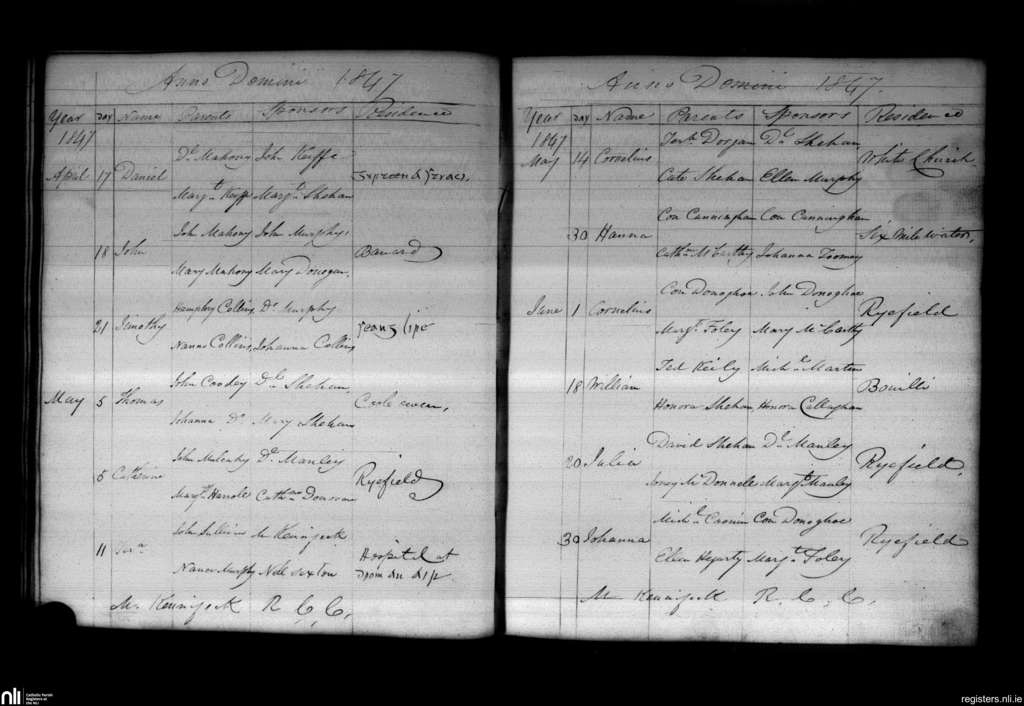 Anno Domini 1847
Year Day Name Parents Sponsors Residence
1847
Dl Mahony John Keiffe
April 17 Daniel
Margt Keiffe Margt Shehan
Joh Mahony John Murphy,
18 John Banard
Mary Mahony Mary Donogan,
Humphry Collins Dl Murphy
21 Timothy
Nanno Collins, Johanna Collins
John Coodey Dl Shehan
May 5 Thomas
Johanna Do Mary Shehan
John Mulcahy Dl Manley
5 Catherine Ryefield
Margt Cathne Donovan
John Sullivan M Kennifeck
11 Hospital at
Nance Murphy Nell Sexton
M. Kennifeck R. C. C.,
Anno Domini 1847.
Year Day Name Parents Sponsors Residence
1847
Dorgan Dl Shehan
May 14 Cornelius White Church
Cate Shehan Ellen Murphy
Con Cunningham Con Cunningham
30 Hanna Six Mile Water,
Cathne McCarthy Johanna Toomey
Con Donoghoe John Donoghoe
June 1 Cornelius Ryefield
Margt Foley Mary McCarthy
Ted Keily Michl Martin
18 William
Honora Shehan Honora Callaghan
David Shehan Dl Manley
20 Julia Ryefield,
McDonnele Margt Manley
Michl Cronin Con Donoghoe
30 Johanna Ryefield
Ellen Hegarty Margt Foley
M Kennifeck R. C. C,
nli Catholic Parish Registers at the NLI
registers.nli.ie